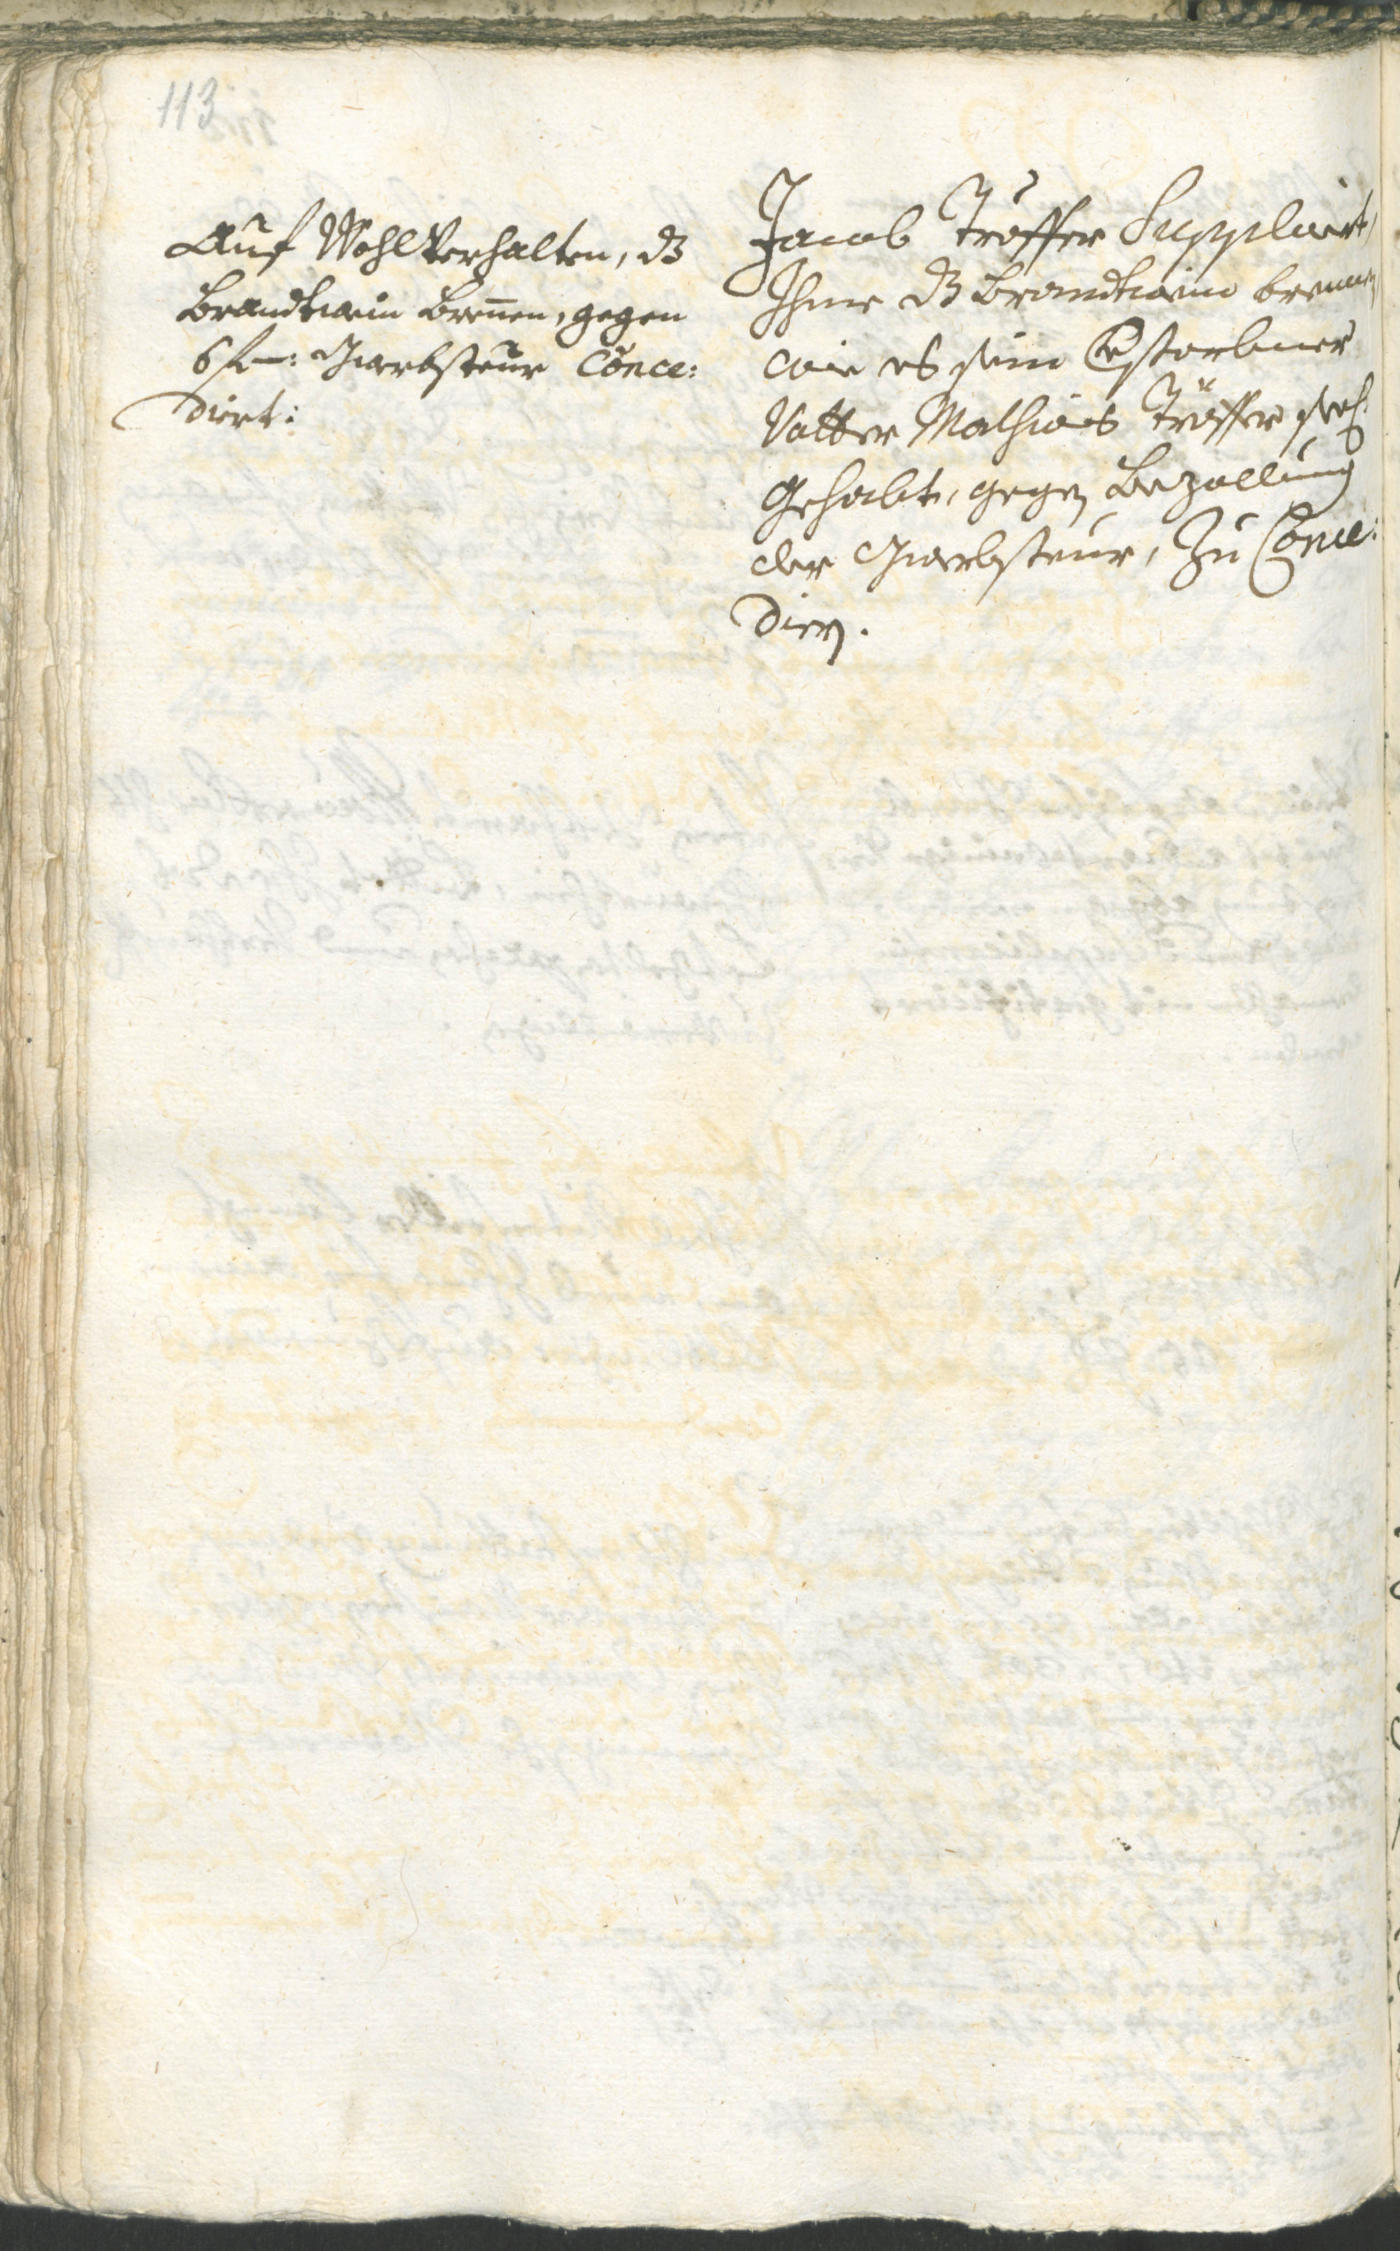 113
Auf Wohlverhalten, dß
Brandtwein Brenen, gegen
6 f: Gwerbsteur Conce:
dirt:
Jacob Tröffer Supplicirt,
Ihme dß Brandtwein brennen
wie es sein verstorbner
Vatter Mathias Tröffer seel.
Gehabt, gegen Bezallung
der Gwerbsteur, zu Conce:
diern.